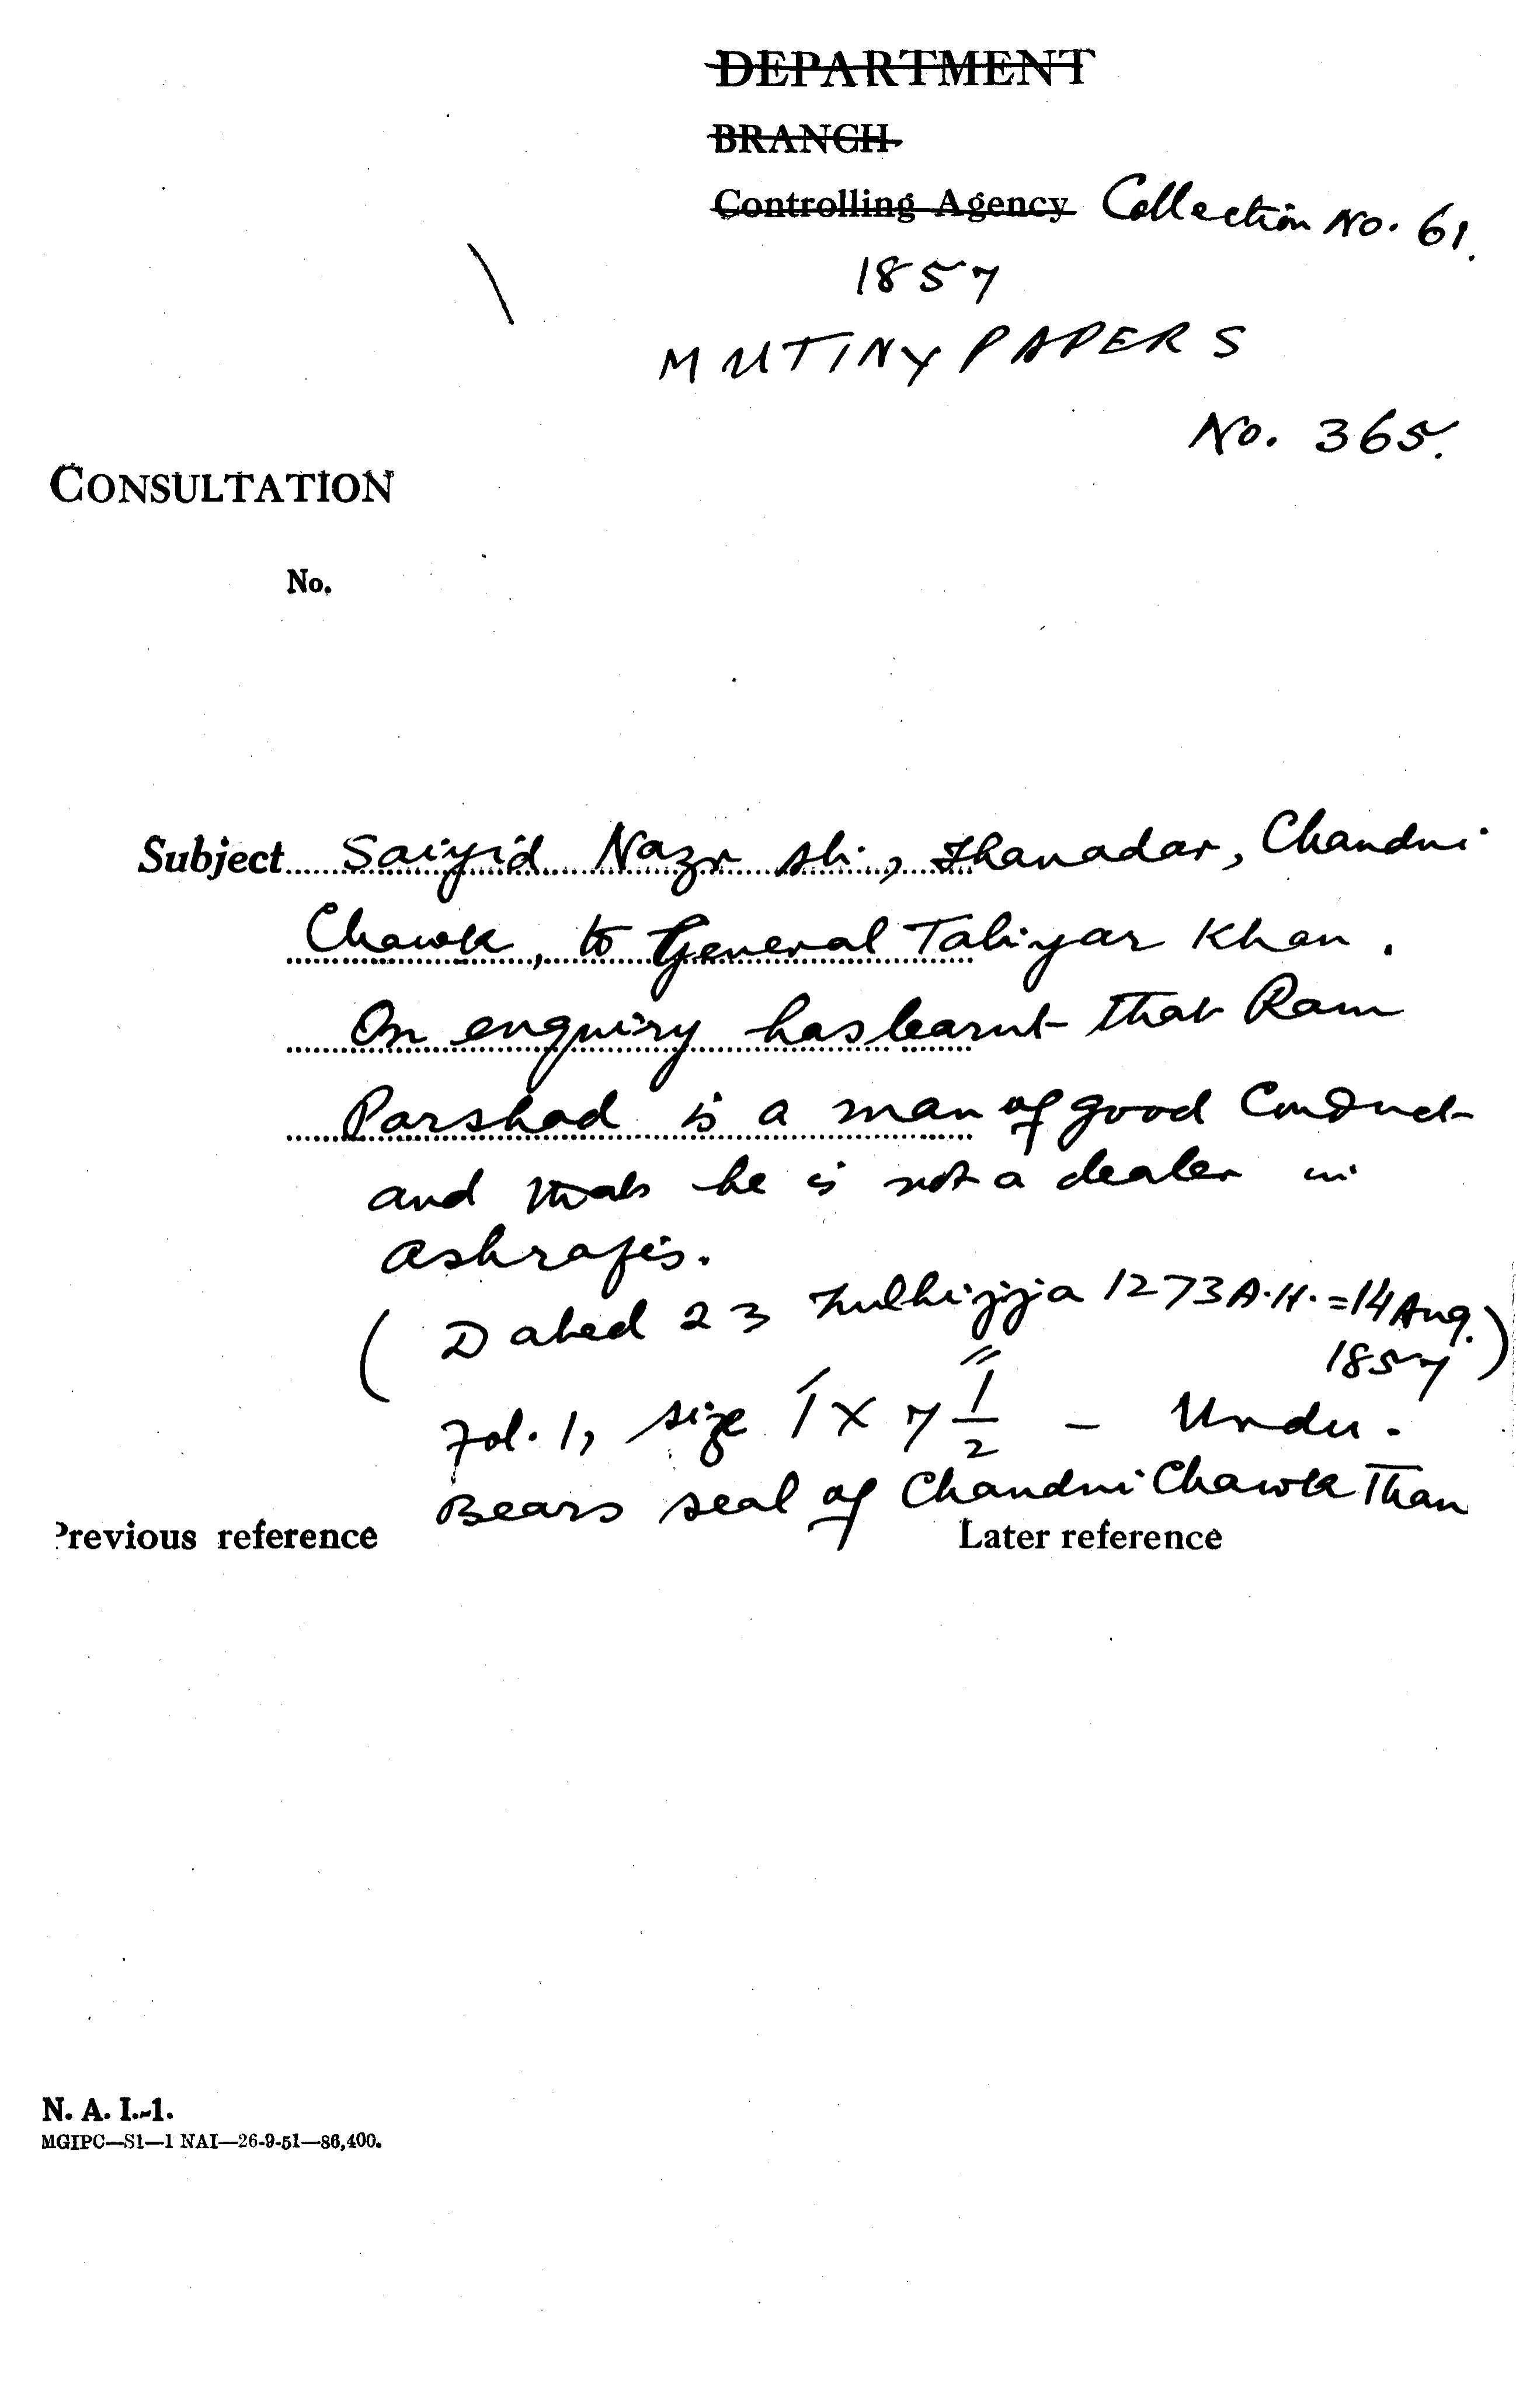 DEPARTMENT
BRANCH
Controlling Agency Collection No. 61.
1857
MUTINY PAPERS
No. 365.
CONSULTATION
No.
Subject Saiyid Nazr Ali, Thanadar, Chandni
Chawk, to General Taliyar Khan.
On enquiry has learnt that Ram
Parshad is a man of good Conduct
and that he is not a dealer in
Ashrafis.
(Dated 23 Zulhijja 1273 A.H. = 14 Aug.
1857)
Fol. 1, size 1' x 7 1/2" – Urdu.
Bears seal of Chandni Chawk Than
Previous reference
Later reference
N. A. I.-1.
MGIPC—S1—1 NAI—26-9-51—86,400.